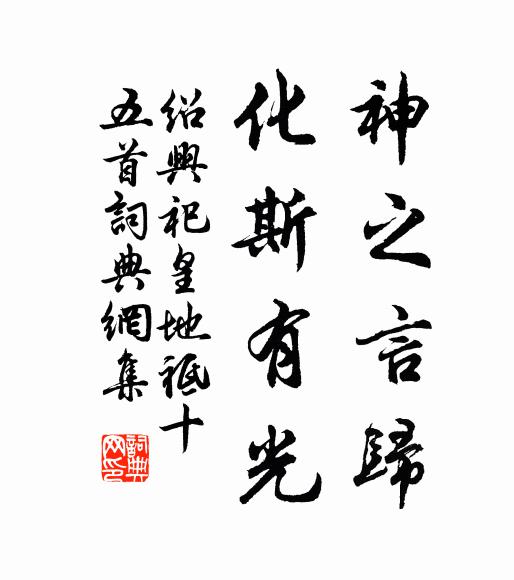 神之言歸
化斯有光
紹興祀皇地祗十
五首詞典網集
詞典网印